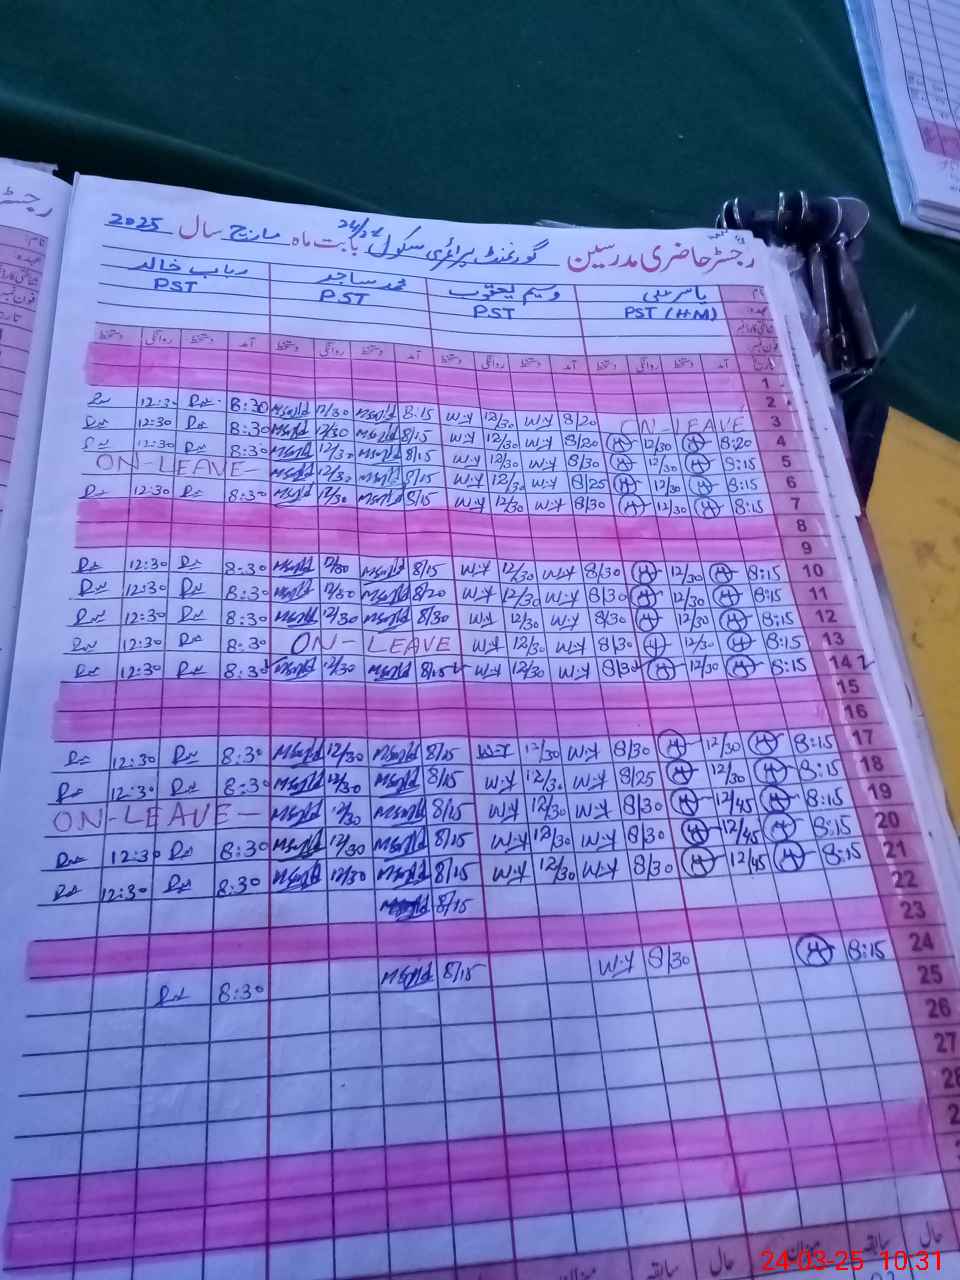 رجسٹر حاضری مدرسین گورنمنٹ پرائمری سکول بابت ماہ مارچ سال 2025
نام یاسر علی وسیم یعقوب محمد ساجد رباب خالد
عہدہ PST (HM) PST PST PST
تاریخ آمد دستخط روانگی دستخط آمد دستخط روانگی دستخط آمد دستخط روانگی دستخط آمد دستخط روانگی دستخط
1
2
3 ON-LEAVE 8/20 W.Y 12/30 W.Y 8:15 12/30 8:30 12:30
4 8:20 12/30 8/20 W.Y 12/30 W.Y 8/15 12/30 8:30 12:30
5 8:15 12/30 8/30 W.Y 12/30 W.Y 8/15 12/30 8:30 12:30
6 8:15 12/30 8/25 W.Y 12/30 W.Y 8/15 12/30 ON-LEAVE
7 8:15 12/30 8/30 W.Y 12/30 W.Y 8/15 12/30 8:30 12:30
8
9
10 8:15 12/30 8/30 W.Y 12/30 W.Y 8/15 12/30 8:30 12:30
11 8:15 12/30 8/30 W.Y 12/30 W.Y 8/20 12/30 8:30 12:30
12 8:15 12/30 8/30 W.Y 12/30 W.Y 8/30 12/30 8:30 12:30
13 8:15 12/30 8/30 W.Y 12/30 W.Y ON-LEAVE 8:30 12:30
14 8:15 12/30 8/30 W.Y 12/30 W.Y 8/15 12/30 8:30 12:30
15
16
17 8:15 12/30 8/30 W.Y 12/30 W.Y 8/15 12/30 8:30 12:30
18 8:15 12/30 8/25 W.Y 12/30 W.Y 8/15 12/30 8:30 12:30
19 8:15 12/45 8/30 W.Y 12/30 W.Y 8/15 12/30 ON-LEAVE
20 8:15 12/45 8/30 W.Y 12/30 W.Y 8/15 12/30 8:30 12:30
21 8:15 12/45 8/30 W.Y 12/30 W.Y 8/15 12/30 8:30 12:30
22 8/15
23
24 8:15 8/30 W.Y 8/15 8:30
25
26
27
28
حال سابقہ میزان حال سابقہ
24-03-25 10:31